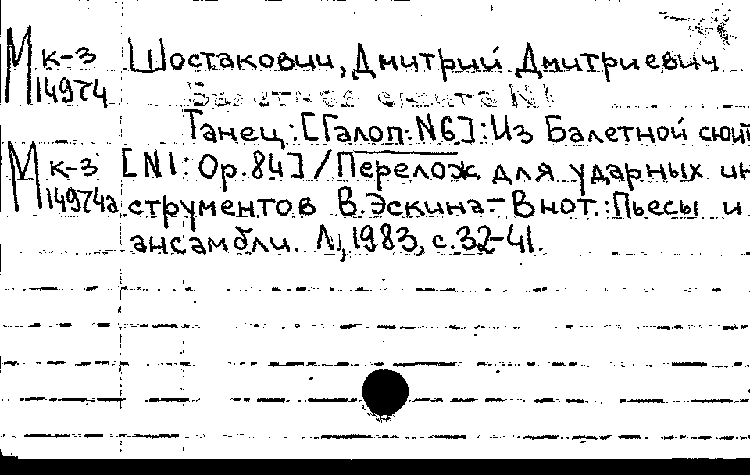 М к-3 Шостакович, Дмитрий Дмитриевич
14974
Балетная сюита N1
Танец: [Галоп: N6]: Из Балетной сюит
М к-3 [N1: Ор. 84] / Перелож. для ударных ин
14974а струментов В. Эскина.- В нот.: Пьесы и
ансамбли. Л., 1983, с. 32-41.